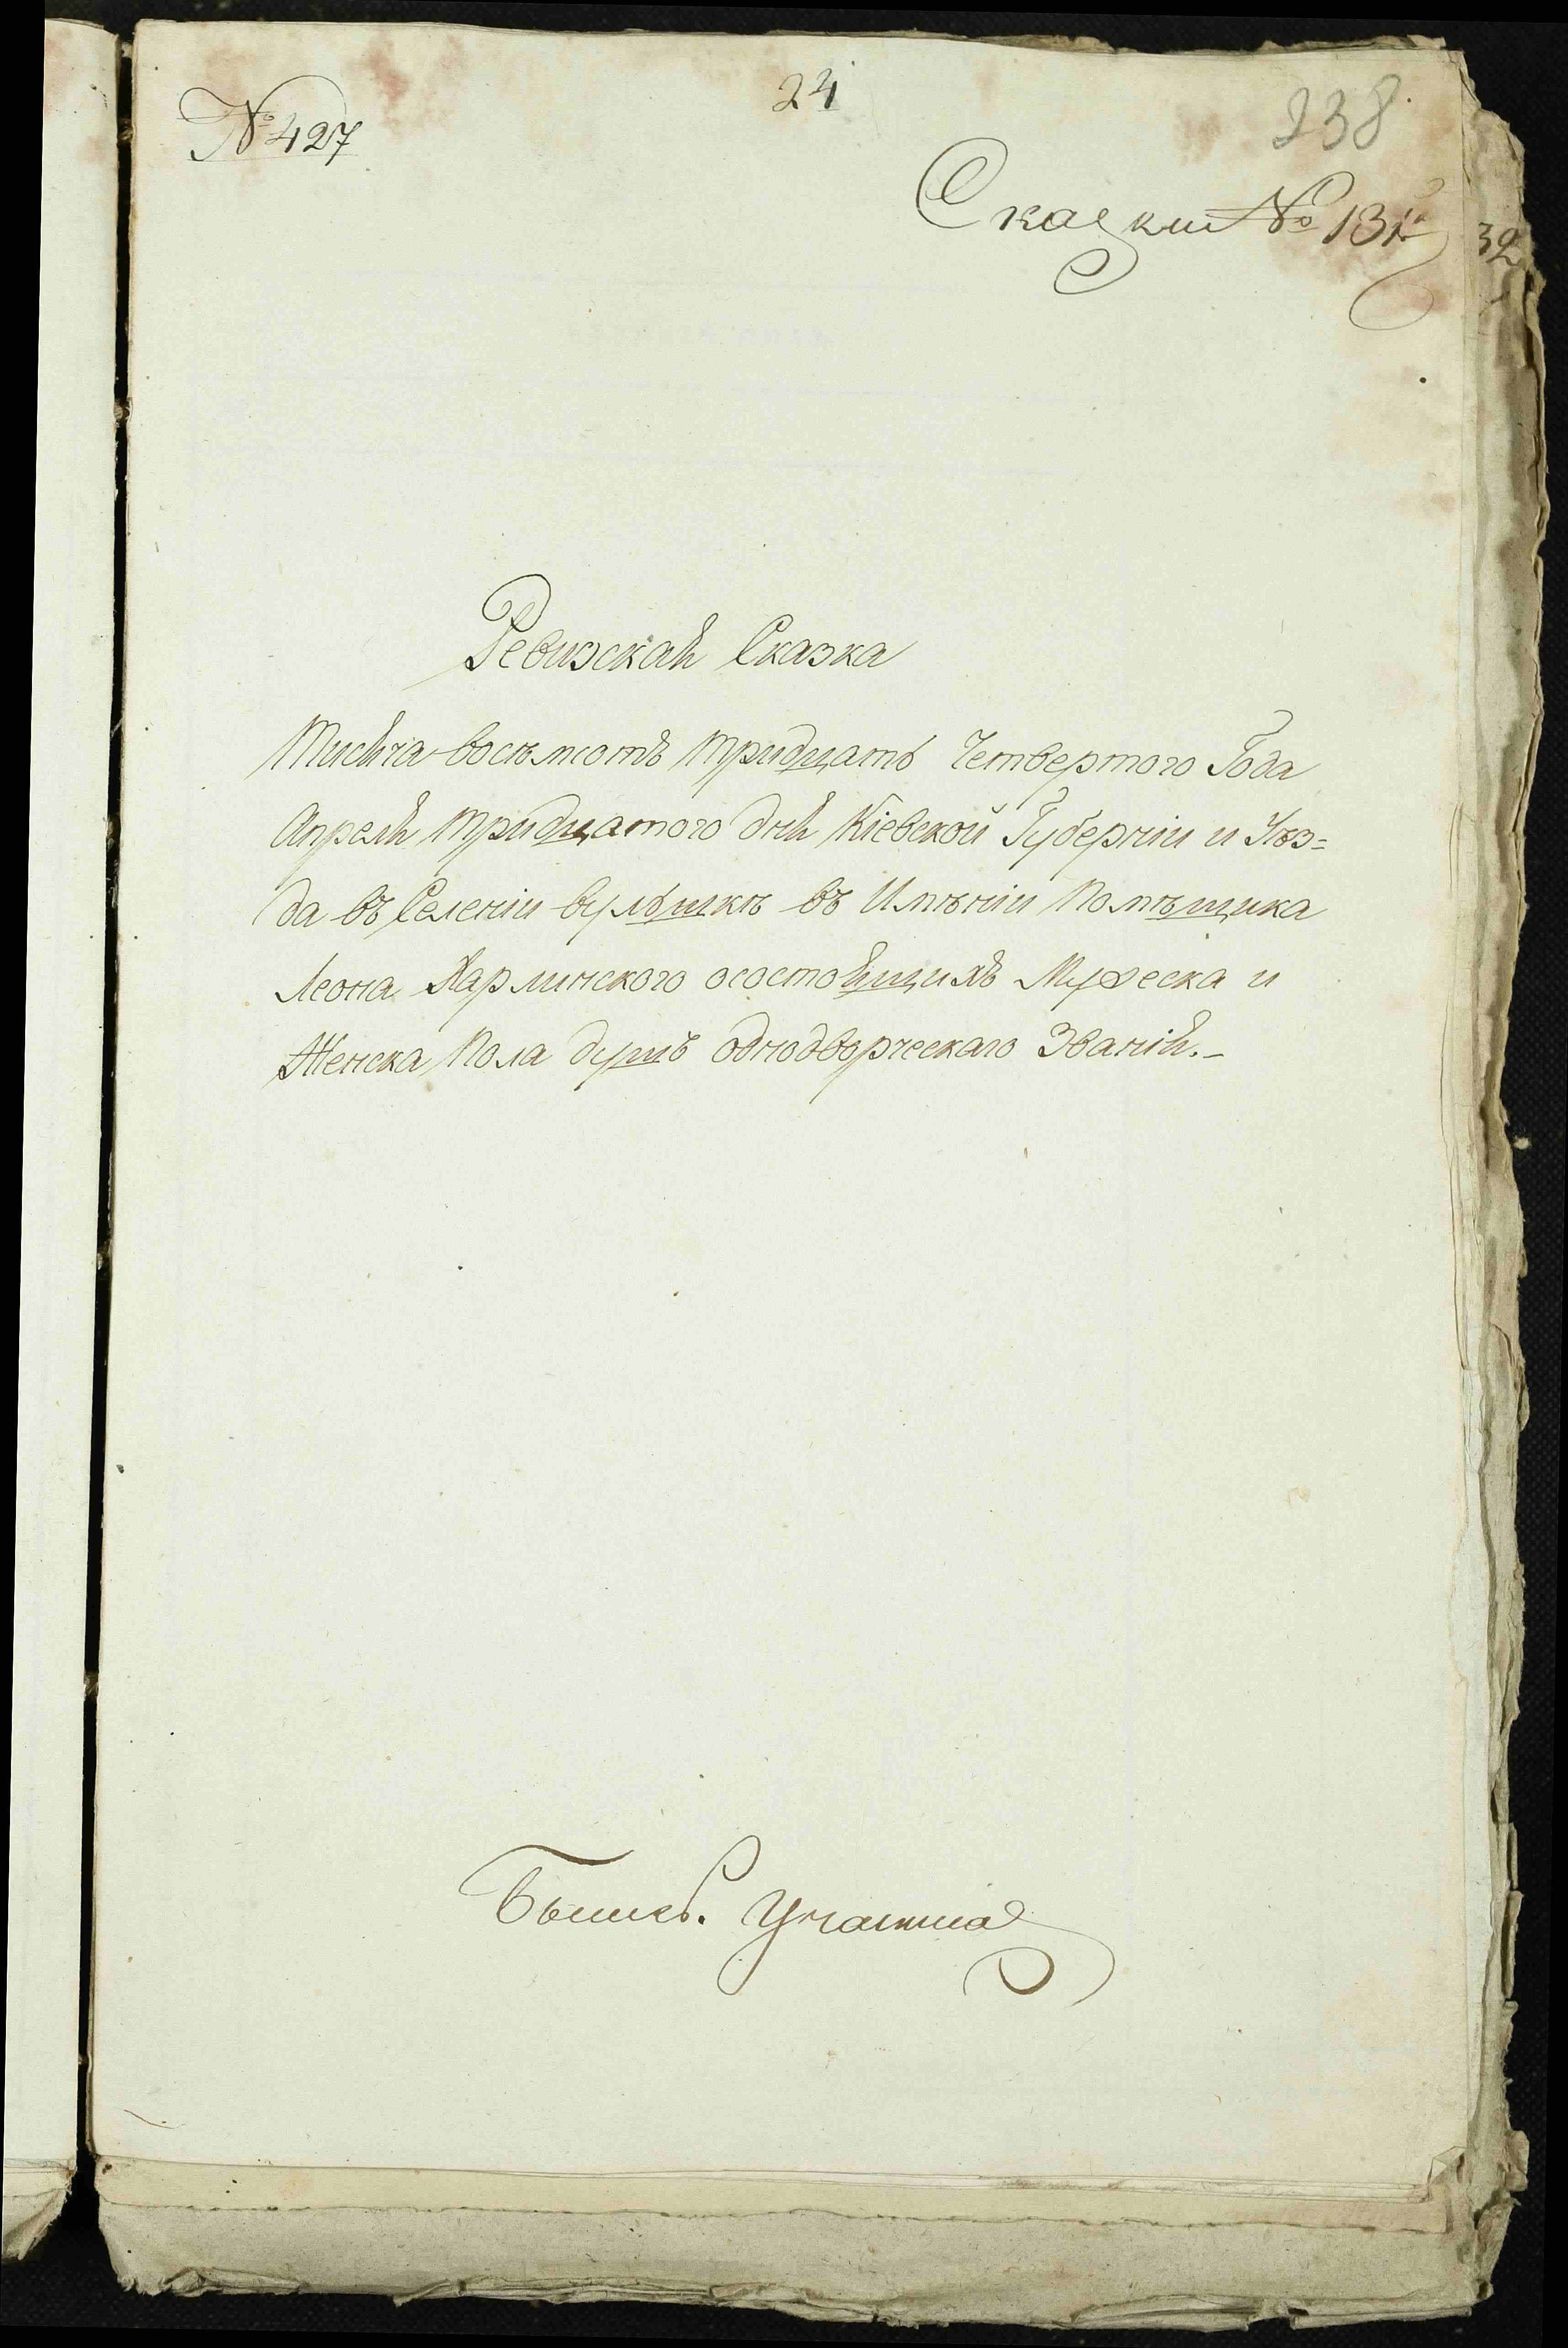 № 427
24
238
Сказки № 131
32
Ревизская Сказка
Тисяча восѣмсотъ тридцать Четвертого Года
Апреля тридцатого дня Кіевской Губерніи и Уѣз=
да въ Селеніи вулѣшкѣ въ Имѣніи Помѣщика
Леона Харлинского осостоящихъ Мужеска и
Женска Пола душъ однодворческаго Званія.-
Бышев. Участка